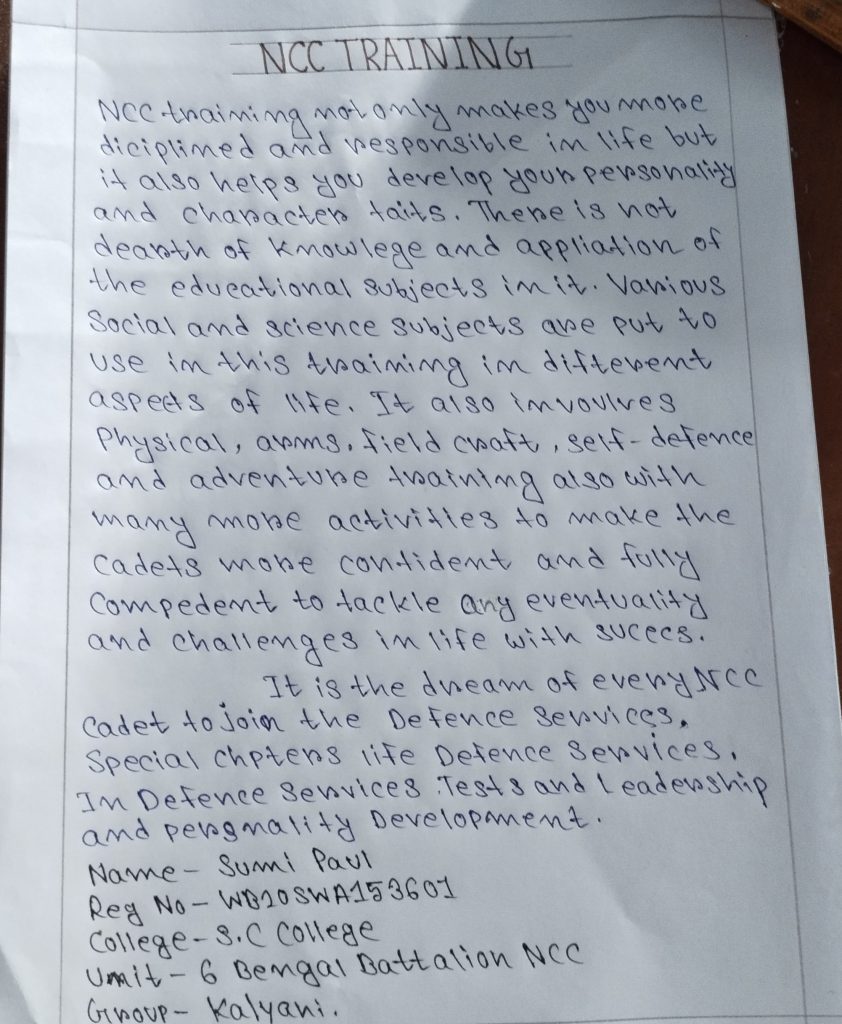 NCC TRAINING
NCC training not only makes you more
diciplined and responsible in life but
it also helps you develop your personality
and character taits. There is not
dearth of knowlege and appliation of
the educational subjects in it. Various
Social and science subjects are put to
use in this training in different
aspects of life. It also invovlves
Physical, arms, field craft, self-defence
and adventure training also with
many more activities to make the
Cadets more confident and fully
Compedent to tackle any eventuality
and challenges in life with sucecs.
It is the dream of every NCC
Cadet to join the Defence Services.
Special chpters life Defence Services,
In Defence Services Tests and Leadership
and persnality Development.
Name - Sumi Paul
Reg No - WB20SWA153601
College - S.C College
Unit - 6 Bengal Battalion NCC
Group - Kalyani.